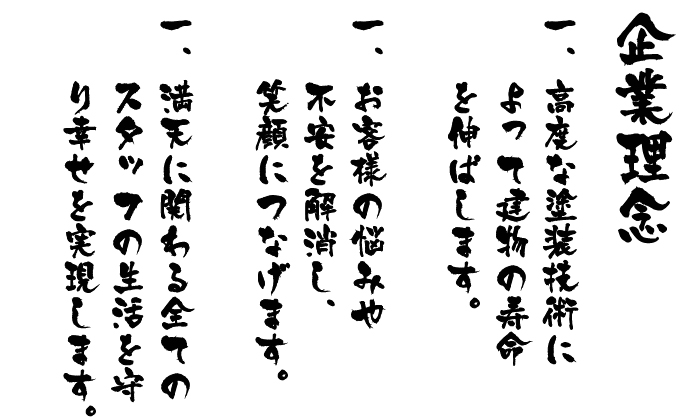 企業理念
一、高度な塗装技術に
よって建物の寿命
を伸ばします。
一、お客様の悩みや
不安を解消し、
笑顔につなげます。
一、満天に関わる全ての
スタッフの生活を守
り幸せを実現します。